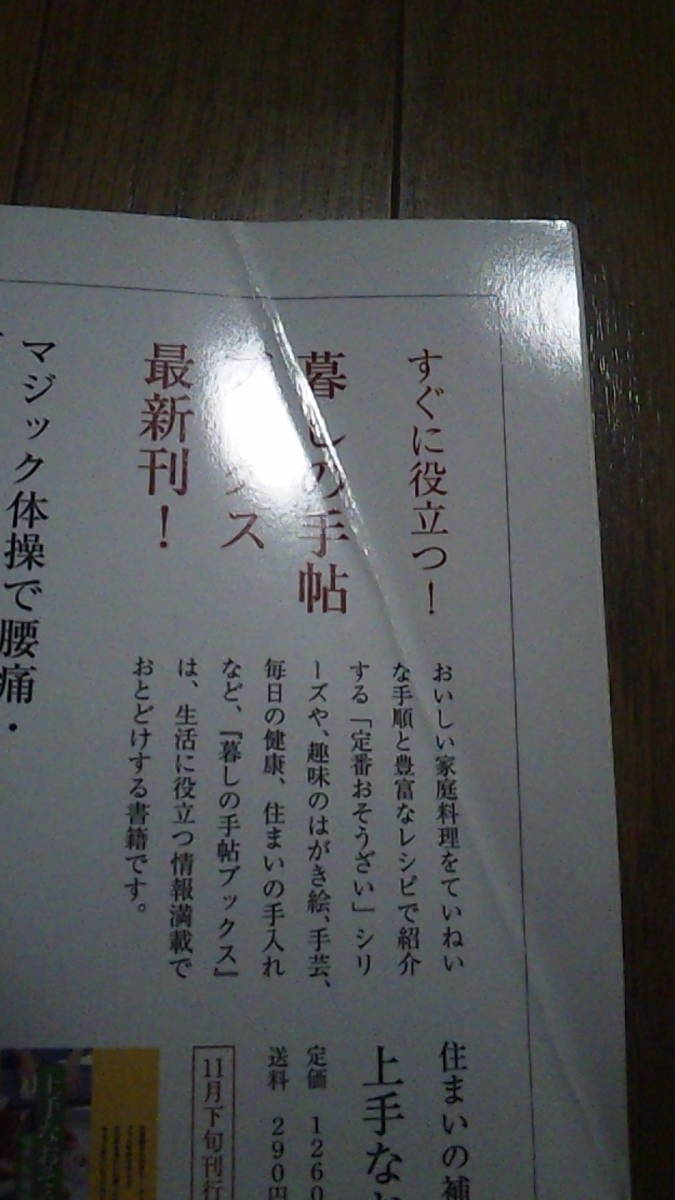 すぐに役立つ！
暮しの手帖
ス
最新刊！
おいしい家庭料理をていねい
な手順と豊富なレシピで紹介
する「定番おそうざい」シリ
ーズや、趣味のはがき絵、手芸、
毎日の健康、住まいの手入れ
など、『暮しの手帖ブックス』
は、生活に役立つ情報満載で
おとどけする書籍です。
住まいの補
上手な
定価 1260
送料 290円
11月下旬刊行
マジック体操で腰痛・